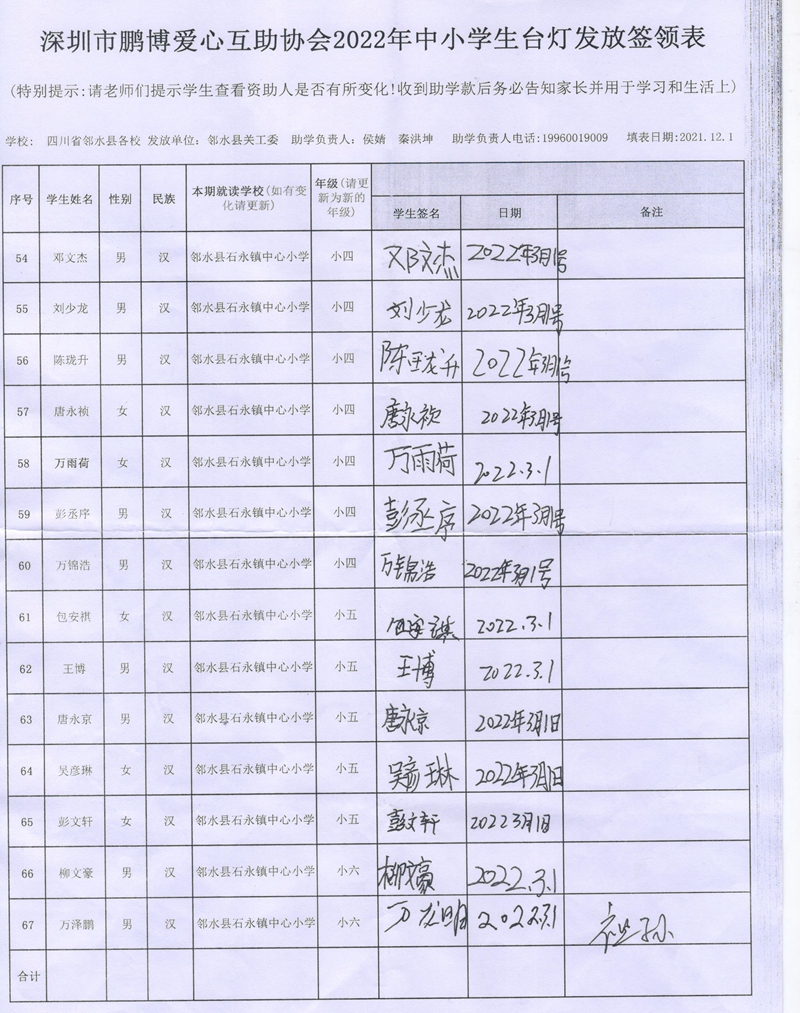 深圳市鹏博爱心互助协会2022年中小学生台灯发放签领表
(特别提示:请老师们提示学生查看资助人是否有所变化!收到助学款后务必告知家长并用于学习和生活上)
学校: 四川省邻水县各校 发放单位: 邻水县关工委 助学负责人: 侯婧 秦洪坤 助学负责人电话:19960019009 填表日期:2021.12.1
序号 学生姓名 性别 民族 本期就读学校(如有变化请更新) 年级(请更新为新的年级) 学生签名 日期 备注
54 邓文杰 男 汉 邻水县石永镇中心小学 小四 邓文杰 2022年3月1号
55 刘少龙 男 汉 邻水县石永镇中心小学 小四 刘少龙 2022年3月1号
56 陈珑升 男 汉 邻水县石永镇中心小学 小四 陈珑升 2022年3月1号
57 唐永祯 女 汉 邻水县石永镇中心小学 小四 唐永祯 2022年3月1号
58 万雨荷 女 汉 邻水县石永镇中心小学 小四 万雨荷 2022.3.1
59 彭丞序 男 汉 邻水县石永镇中心小学 小四 彭丞序 2022年3月1号
60 万锦浩 男 汉 邻水县石永镇中心小学 小四 万锦浩 2022年3月1号
61 包安祺 女 汉 邻水县石永镇中心小学 小五 包安祺 2022.3.1
62 王博 男 汉 邻水县石永镇中心小学 小五 王博 2022.3.1
63 唐永京 男 汉 邻水县石永镇中心小学 小五 唐永京 2022年3月1日
64 吴彦琳 女 汉 邻水县石永镇中心小学 小五 吴彦琳 2022年3月1日
65 彭文轩 女 汉 邻水县石永镇中心小学 小五 彭文轩 2022 3月1日
66 柳文豪 男 汉 邻水县石永镇中心小学 小六 柳文豪 2022.3.1
67 万泽鹏 男 汉 邻水县石永镇中心小学 小六 万龙明 2022.3.1 祖孙
合计